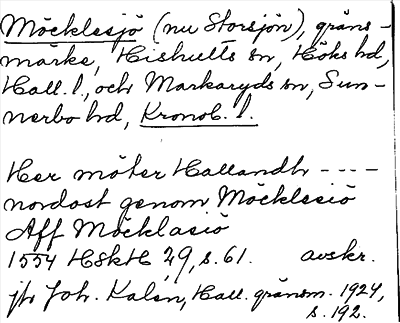 Möcklesjö (nu Storsjön), gräns-
märke, Hishults sn, Höks hd,
Hall. l., och Markaryds sn, Sun-
nerbo hd, Kronob. l.
Her möter Hallandh ----
nordost genom Möcklesiö
Aff Möcklasiö
1554 HSkH 29, s. 61. avskr.
jfr Joh. Kalén, Hall. gränsm. 1924,
s. 192.